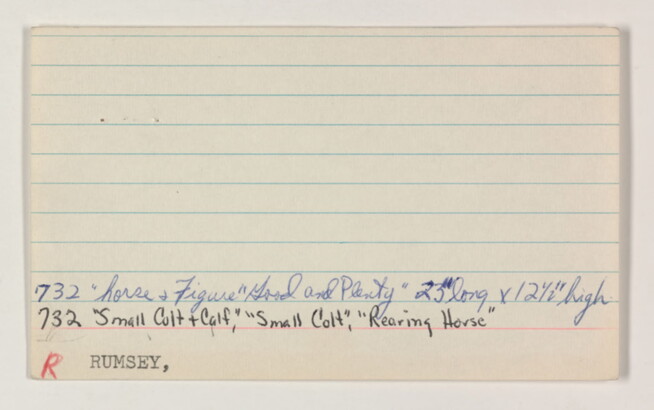 732 "horse & Figure" "Good and Plenty" 23" long x 12½" high
732 "Small Colt + Calf," "Small Colt", "Rearing Horse"
R RUMSEY,